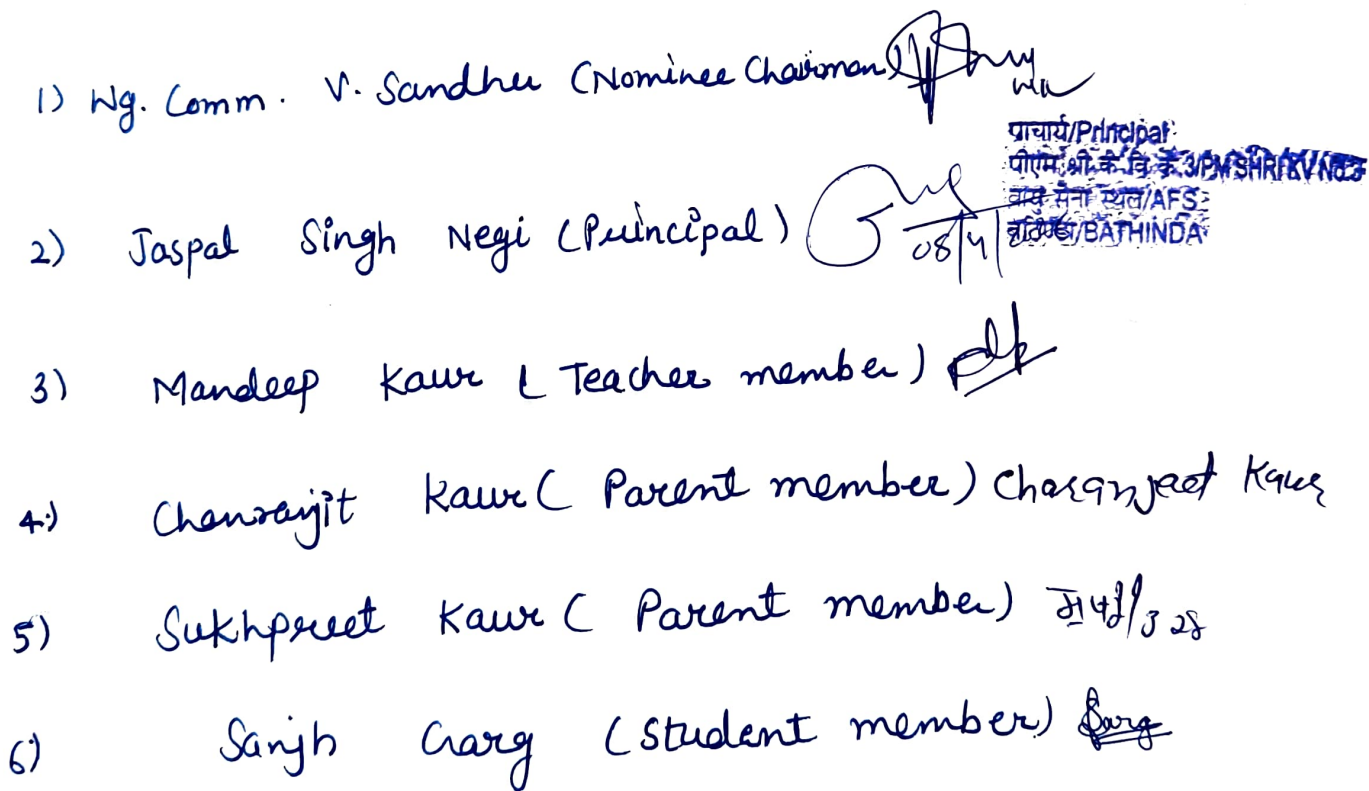 1) Wg. Comm. V. Sandhu (Nominee Chairman)
प्राचार्य/Principal
पीएम श्री के. वि. क्र. 3/PM SHRI KV No.3
वायु सेना स्थल/AFS
2) Jaspal Singh Negi (Principal) 08/4/
बठिण्डा/BATHINDA
3) Mandeep Kaur ( Teacher member)
4.) Charanjit Kaur ( Parent member) Charanjeet Kaur
5) Sukhpreet Kaur ( Parent member)
6) Sanjh Garg (Student member) Garg